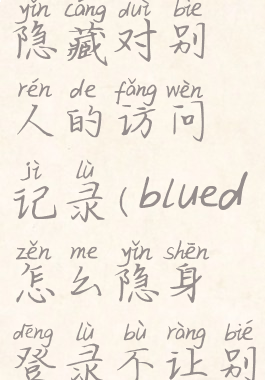 yǐn cáng duì bié
隐藏对别
rén de fǎng wèn
人的访问
jì lù
记录(blued
zěn me yǐn shēn
怎么隐身
dēng lù bù ràng bié
登录不让别